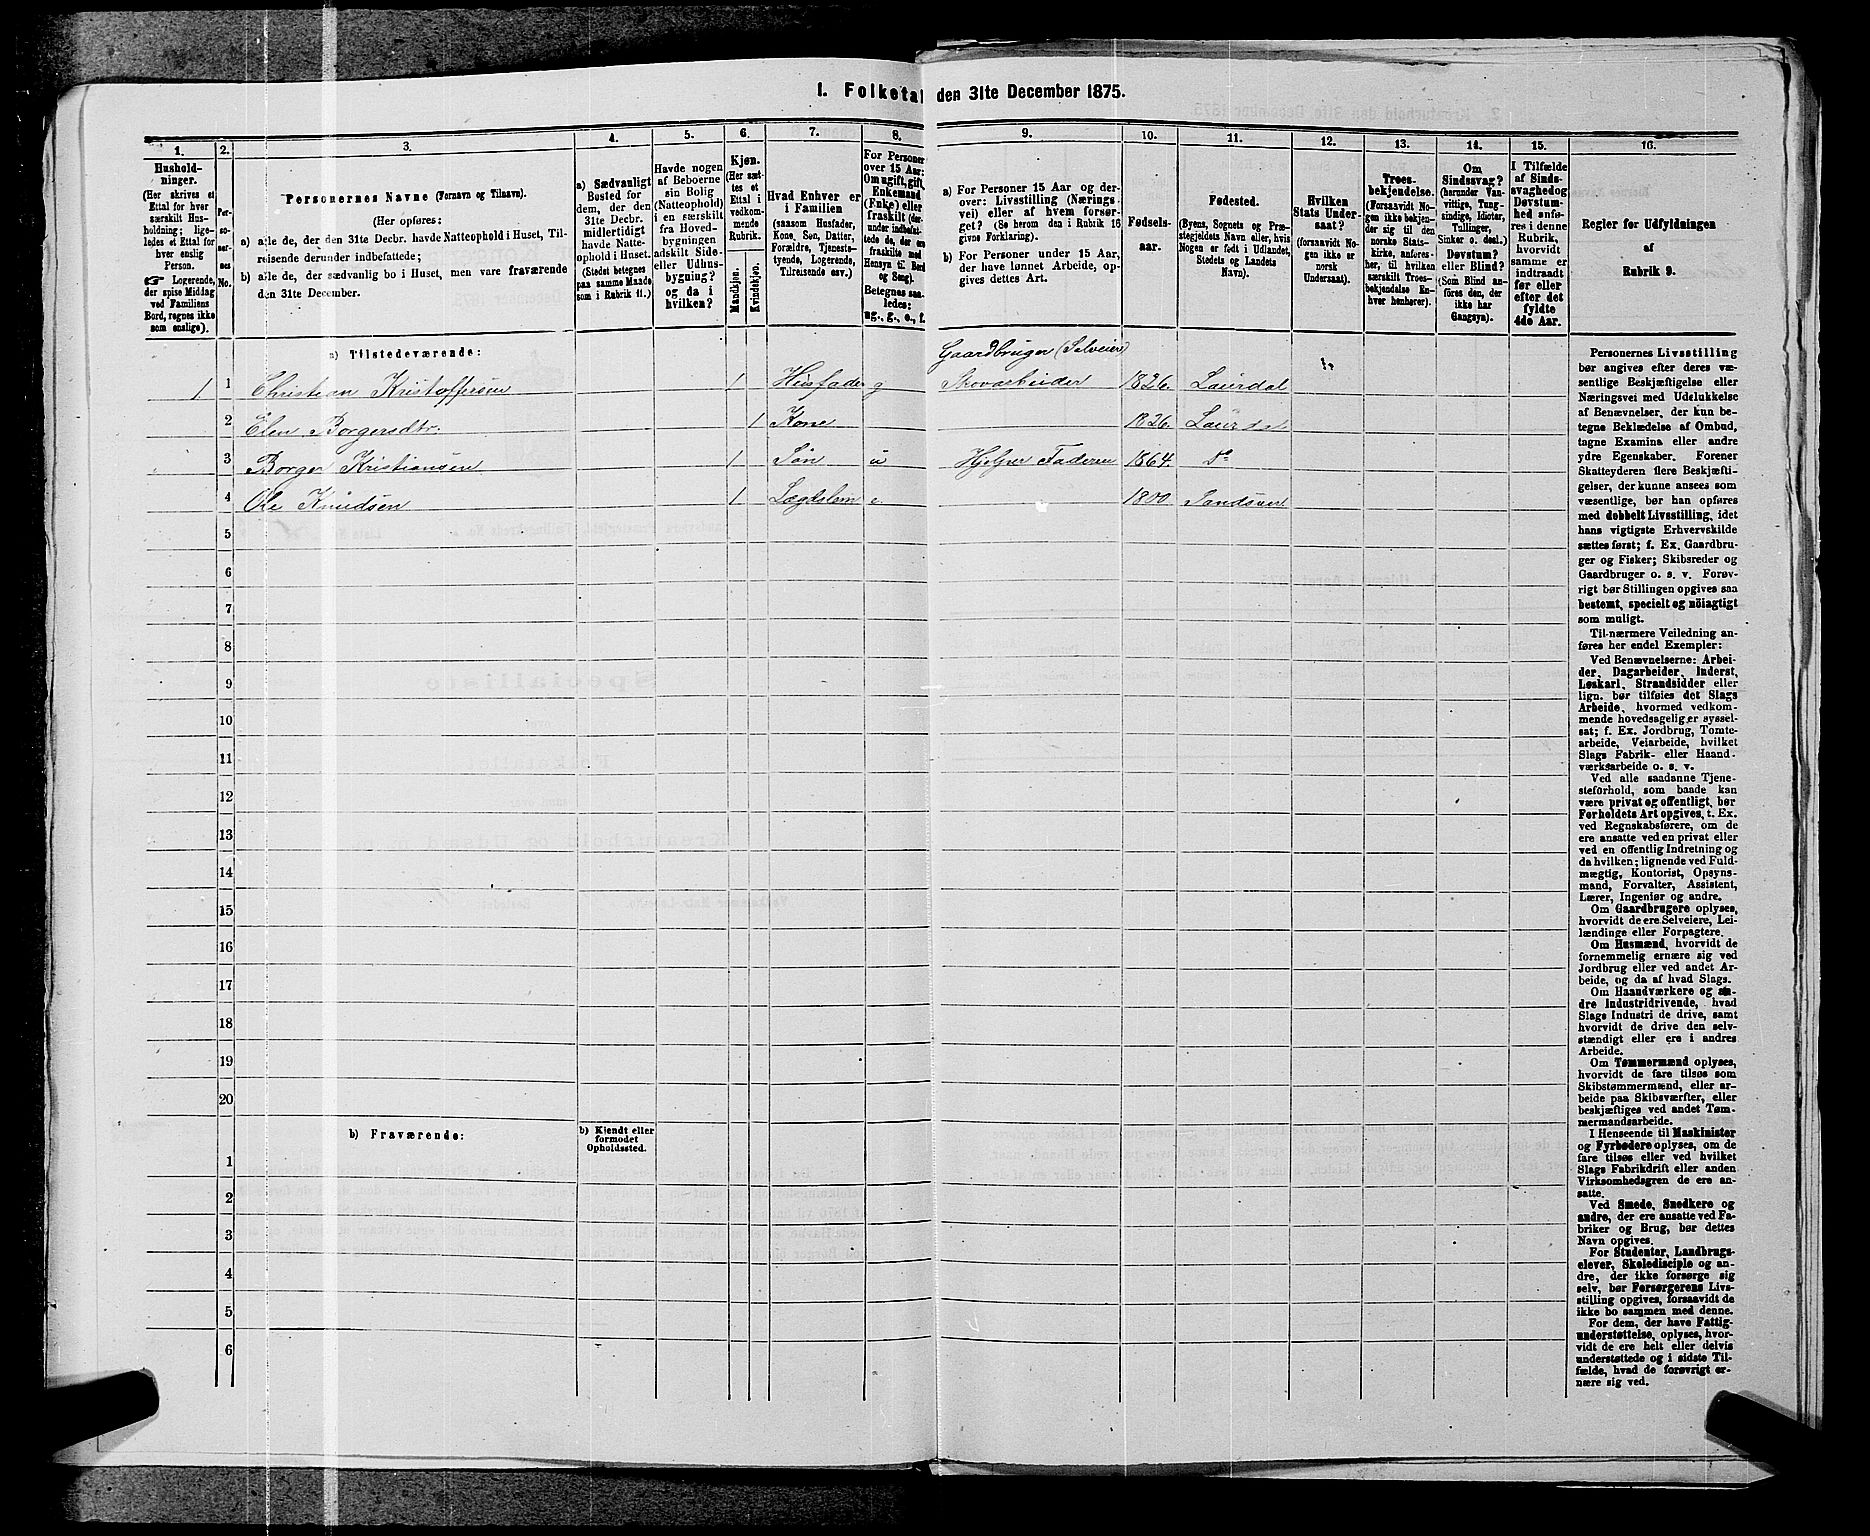 1. Folketal den 31te December 1875.
1. 2. 3. 4. 5. 6. 7. 8. 9. 10. 11. 12. 13. 14. 15. 16.
Hushold-
ninger.
(Her skrives et
Ettal for hver
særskilt Hus-
holdning; lige-
ledes et Ettal for
hver enslig
Person.
☞ Logerende,
der spise Middag
ved Familiens
Bord, regnes ikke
som enslige).
Per-
so-
ner-
nes
No.
Personernes Navne (Fornavn og Tilnavn).
(Her opføres:
a) alle de, der den 31te Decbr. havde Natteophold i Huset, Til-
reisende derunder indbefattede;
b) alle de, der sædvanlig bo i Huset, men vare fraværende
den 31te December.
a) Sædvanligt
Bosted for
dem, der den
31te Decbr.
midlertidigt
havde Natte-
ophold i Huset.
(Stedet betegnes
paa samme Maade
som i Rubrik 11.)
Havde nogen
af Beboerne
sin Bolig
(Natteophold)
i en særskilt
fra Hoved-
bygningen
adskilt Side-
eller Udhus-
bygning?
og da i
hvilken?
Kjøn.
(Her sæt-
tes et
Ettal i
vedkom-
mende
Rubrik.
Mandkjøn.
Kvindekjøn.
Hvad Enhver er
i Familien
(saasom Husfader,
Kone, Søn, Datter,
Forældre, Tjeneste-
tyende, Logerende,
Tilreisende osv.)
For Personer
over 15 Aar:
Om ugift, gift,
Enkemand
(Enke) eller
fraskilt (der-
under indbefat-
tede de, der ere
fraskilte med
Hensyn til Bord
og Seng).
Betegnes saa-
ledes:
ug., g., e., f.
a) For Personer 15 Aar og der-
over: Livsstilling (Nærings-
vei) eller af hvem forsør-
get? (Se herom den i Rubrik 16
givne Forklaring).
b) For Personer under 15 Aar,
der have lønnet Arbeide, op-
gives dettes Art.
Fødsels-
aar.
Fødested.
(Byens, Sognets og Præ-
stegjeldets Navn eller, hvis
Nogen er født i Udlandet,
Stedets og Landets
Navn).
Hvilken
Stats Under-
saat?
(forsaavidt No-
gen ikke er
norsk
Undersaat).
Troes-
bekjendelse.
(Forsaavidt No-
gen ikke bekjen-
der sig til den
norske Stats-
kirke, anføres-
her, til hvilken
særskilt Troes-
bekjendelse En-
hver henhører).
Om
Sindssvag?
(herunder Van-
vittige, Tung-
sindige, Idioter,
Tullinger,
Sinker o. desl.).
Døvstum?
eller Blind?
(Som Blind an-
føres den, der
ikke har
Gangsyn).
I Tilfælde
af Sinds-
svaghed og
Døvstum-
hed anfø-
res i denne
Rubrik,
hvorvidt
samme er
indtraadt
før eller
efter det
fyldte
4de Aar.
Regler for Udfyldningen
af
Rubrik 9.
a) Tilstedeværende:
Gaardbruger (Selveier)
1 1 Christian Kristoffersen 1 Husfader g Skovarbeider 1826. Laurdal
2 Elen Borgersdtr. 1 Kone 1826. Laurdal
3 Borger Kristiansen 1 Søn u Hjelper Faderen 1864. Do
4 Ole Knudsen 1 Lægdslem e. 1800. Sandsver
5
6
7
8
9
10
11
12
13
14
15
16
17
18
19
20
b) Fraværende:
b) Kjendt eller
formodet
Opholdssted.
1
2
3
4
5
6
Personernes Livsstilling
bør angives efter deres væ-
sentlige Beskjæftigelse eller
Næringsvei med Udelukkelse
af Benævnelser, der kun be-
tegne Beklædelse af Ombud,
tagne Examina eller andre
ydre Egenskaber. Forener
Skatteyderen flere Beskjæfti-
gelser, der kunne ansees som
væsentlige, bør han opføres
med dobbelt Livsstilling, idet
hans vigtigste Erhvervskilde
sættes først; f. Ex. Gaardbru-
ger og Fisker; Skibsreder og
Gaardbruger o. s. v. Forøv-
rigt bør Stillingen opgives saa
bestemt, specielt og nöiagtigt
som muligt.
Til nærmere Veiledning an-
føres her endel Exempler:
Ved Benævnelserne: Arbei-
der, Dagarbeider, Inderst,
Løskarl, Strandsidder eller
lign. bør tilføies det Slags
Arbeide, hvormed vedkom-
mende hovedsagelig er syssel-
sat; f. Ex. Jordbrug, Tomte-
arbeide, Veiarbeide, hvilket
Slags Fabrik- eller Haand-
værksarbeide o. s. v.
Ved alle saadanne Tjene-
steforhold, som baade kan
være privat og offentligt, bør
Forholdets Art opgives, t. Ex.
ved Regnskabsførere, om de
ere ansatte ved en privat eller
ved en offentlig Indretning og
da hvilken; lignende ved Fuld-
mægtig, Kontorist, Opsyns-
mand, Forvalter, Assistent,
Lærer, Ingeniør og andre.
Om Gaardbrugere oplyses,
hvorvidt de ere Selveiere, Lei-
lændinge eller Forpagtere.
Om Husmænd, hvorvidt de
fornemmelig ernære sig ved
Jordbrug eller ved andet Ar-
beide, og da af hvad Slags.
Om Haandværkere og an-
dre Industridrivende, hvad
Slags Industri de drive, samt
hvorvidt de drive den selv-
stændigt eller ere i andres
Arbeide.
Om Tømmermænd oplyses,
hvorvidt de fare tilsøs som
Skibstømmermænd, eller ar-
beide paa Skibsværfter, eller
beskjæftiges ved andet Tøm-
mermandsarbeide.
I Henseende til Maskinister
og Fyrbødere oplyses, om de
fare tilsøs eller ved hvilket
Slags Fabrikdrift eller anden
Virksomhedsgren de ere an-
satte.
Ved Smede, Snedkere og
andre, der ere ansatte ved Fa-
briker og Brug, bør dettes
Navn opgives.
For Studenter, Landbrugs-
elever, Skoledisciple og an-
dre, der ikke forsørge sig
selv, bør Forsørgerens Livs-
stilling opgives, forsaavidt de
ikke bo sammen med denne.
For dem, der have Fattig-
understøttelse, oplyses, hvor-
vidt de ere helt eller delvis
understøttede og i sidste Til-
fælde, hvad de forøvrigt er-
nære sig ved.